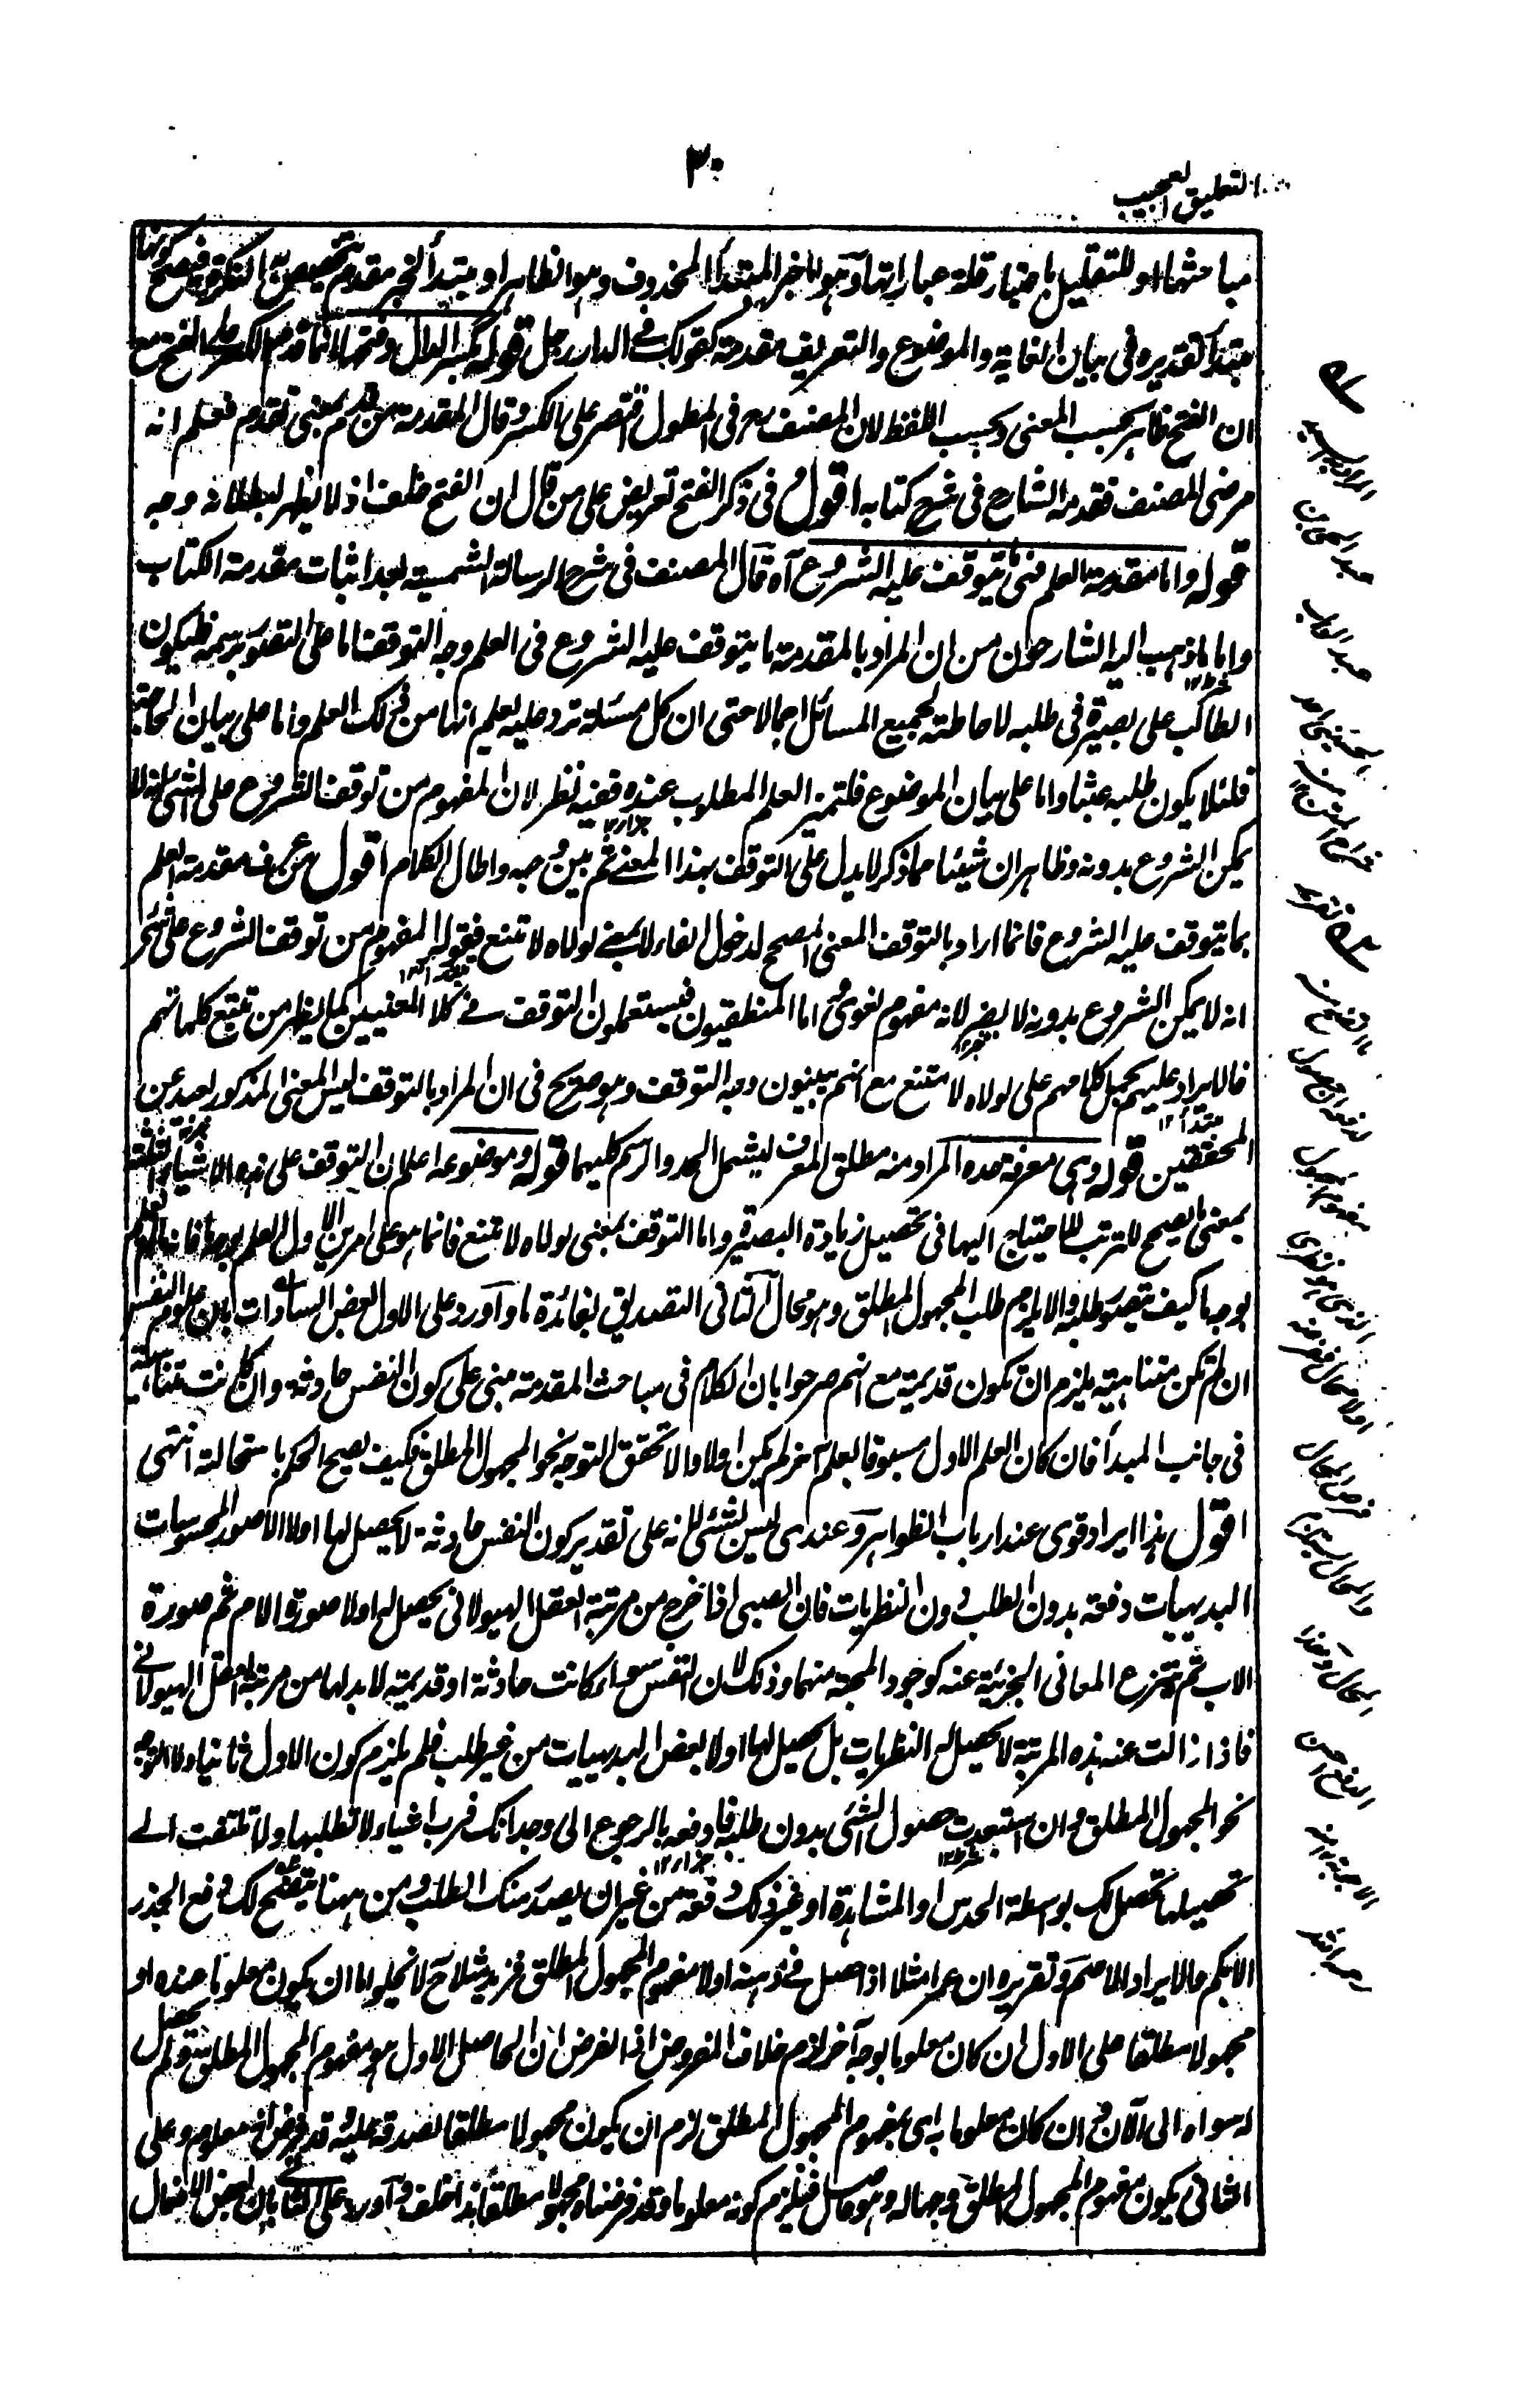 ٣٠
التعليق العجيب
مباحثها او للتقليل باعتبار قلة عباراتها وهو اما خبر المبتدأ المحذوف وهو الظاهر او مبتدأ لخبر مقدم النكرة فيصح كونها
مبتدأ تقديره فى بيان الغاية والموضوع والتعريف مقدمة كقولك فى الدار رجل قوله بكسر الدال وفتحها انما قدم الكسر على الفتح مع
ان الفتح ظاهر بحسب المعنى وبحسب اللفظ لان المصنف فى المطول اقتصر على الكسر وقال المقدمة من قدم بمعنى تقدم فعلم انه
مرضى المصنف فقدمه الشارح فى شرح كتابه اقول وفى ذكر الفتح تعريض على من قال ان الفتح خلف اذ لا يظهر لبطلانه وجه
قوله واما مقدمة العلم فهى ما يتوقف عليه الشروع آه قال المصنف فى شرح الرسالة الشمسية بعد اثبات مقدمة الكتاب
واما ما ذهب اليه الشارحون من ان المراد بالمقدمة ما يتوقف عليه الشروع فى العلم وجه التوقف اما على التصور برسمه فليكون
الطالب على بصيرة فى طلبه لاحاطته بجميع المسائل اجمالا حتى ان كل مسئلة ترد عليه يعلم انها من ذلك العلم واما على بيان الحاجة
فلئلا يكون طلبه عبثا واما على بيان الموضوع فلتميز العلم المطلوب عنده ففيه نظر لان المفهوم من توقف الشروع على الشئ انه لا
يمكن الشروع بدونه وظاهر ان شيئا مما ذكر لا يدل على التوقف بهذا المعنى ثم بين وجهه واطال الكلام اقول من عرف مقدمة العلم
بما يتوقف عليه الشروع فانما اراد بالتوقف المعنى المصحح لدخول الفاء لا بمعنى لولاه لامتنع فقوله المفهوم من توقف الشروع على شئ
انه لا يمكن الشروع بدونه لا يضر لانه مفهوم لغوى اما المنطقيون فيستعملون التوقف فى كلا المعنيين كما يظهر من تتبع كلماتهم
فالايراد عليهم بحمل كلامهم على لولاه لامتنع مع انهم يبينون وجه التوقف وهو صريح فى ان المراد بالتوقف ليس المعنى المذكور بعيد عن
المحققين قوله وهى معرفة حده المراد منه مطلق المعرف ليشمل الحد والرسم كليهما قوله وموضوعه اعلم ان التوقف على هذه الاشياء الثلثة
بمعنى ما يصح للترتب للاحتياج اليها فى تحصيل زيادة البصيرة واما التوقف بمعنى لولاه لامتنع فانما هو على امرين الاول العلم بوجه ما فانه ما لم يعلم
بوجه ما كيف يتصور طلبه والا يلزم طلب المجهول المطلق وهو محال الثانى التصديق بفائدة ما واورد على الاول بعض السادات بان علوم النفس
ان لم تكن متناهية يلزم ان تكون قديمة مع انهم صرحوا بان الكلام فى مباحث المقدمة مبنى على كون النفس حادثة وان كانت متناهية
فى جانب المبدأ فان كان العلم الاول مسبوقا بعلم آخر لم يكن اولا والا تحقق التوجه نحو المجهول المطلق فكيف يصح الحكم باستحالته انتهى
اقول هذا ايراد قوى عند ارباب الظواهر وعندى ليس بشئ لانه على تقدير كون النفس حادثة لا يحصل لها اولا الا صور المحسوسات
البديهيات دفعة بدون الطلب دون النظريات فان الصبى اذا خرج من مرتبة العقل الهيولانى يحصل له اولا صورة الام ثم صورة
الاب ثم ينتزع المعانى الجزئية عنه كوجود المحبة منهما وذلك لان النفس سواء كانت حادثة او قديمة لا بد لها من مرتبة العقل الهيولانى
فاذا زالت عنه هذه المرتبة لا تحصل له النظريات بل يحصل لها اولا بعض البديهيات من غير طلب فلم يلزم كون الاول ثانيا ولا التوجه
نحو المجهول المطلق وان استبعدت حصول الشئ بدون طلبه فادفعه بالرجوع الى وجدانك فرب اشياء لا تطلبها ولا تلتفت الى
تحصيلها تحصل لك بواسطة الحدس او المشاهدة او غير ذلك دفعة من غير ان يصدر منك الطلب ومن ههنا يتضح لك دفع الجذر
الابكم والايراد الاصم وتقريره ان عمرا مثلا اذا حصل فى ذهنه اولا مفهوم المجهول المطلق فزيد مثلا ح لا يخلو اما ان يكون معلوما عنده او
مجهولا مطلقا على الاول ان كان معلوما بوجه آخر لزم خلاف المفروض اذ الفرض ان الحاصل الاول هو مفهوم المجهول المطلق ولم يحصل
له سواه الى الآن وان كان معلوما به اى بمفهوم المجهول المطلق لزم ان يكون مجهولا مطلقا لصدقه عليه وقد فرض انه معلوم وعلى
الثانى يكون مفهوم المجهول المطلق وجها له وهو حاصل فيلزم كونه معلوما وقد فرضناه مجهولا مطلقا هذا خلف واورد على الثانى بان بعض الافعال